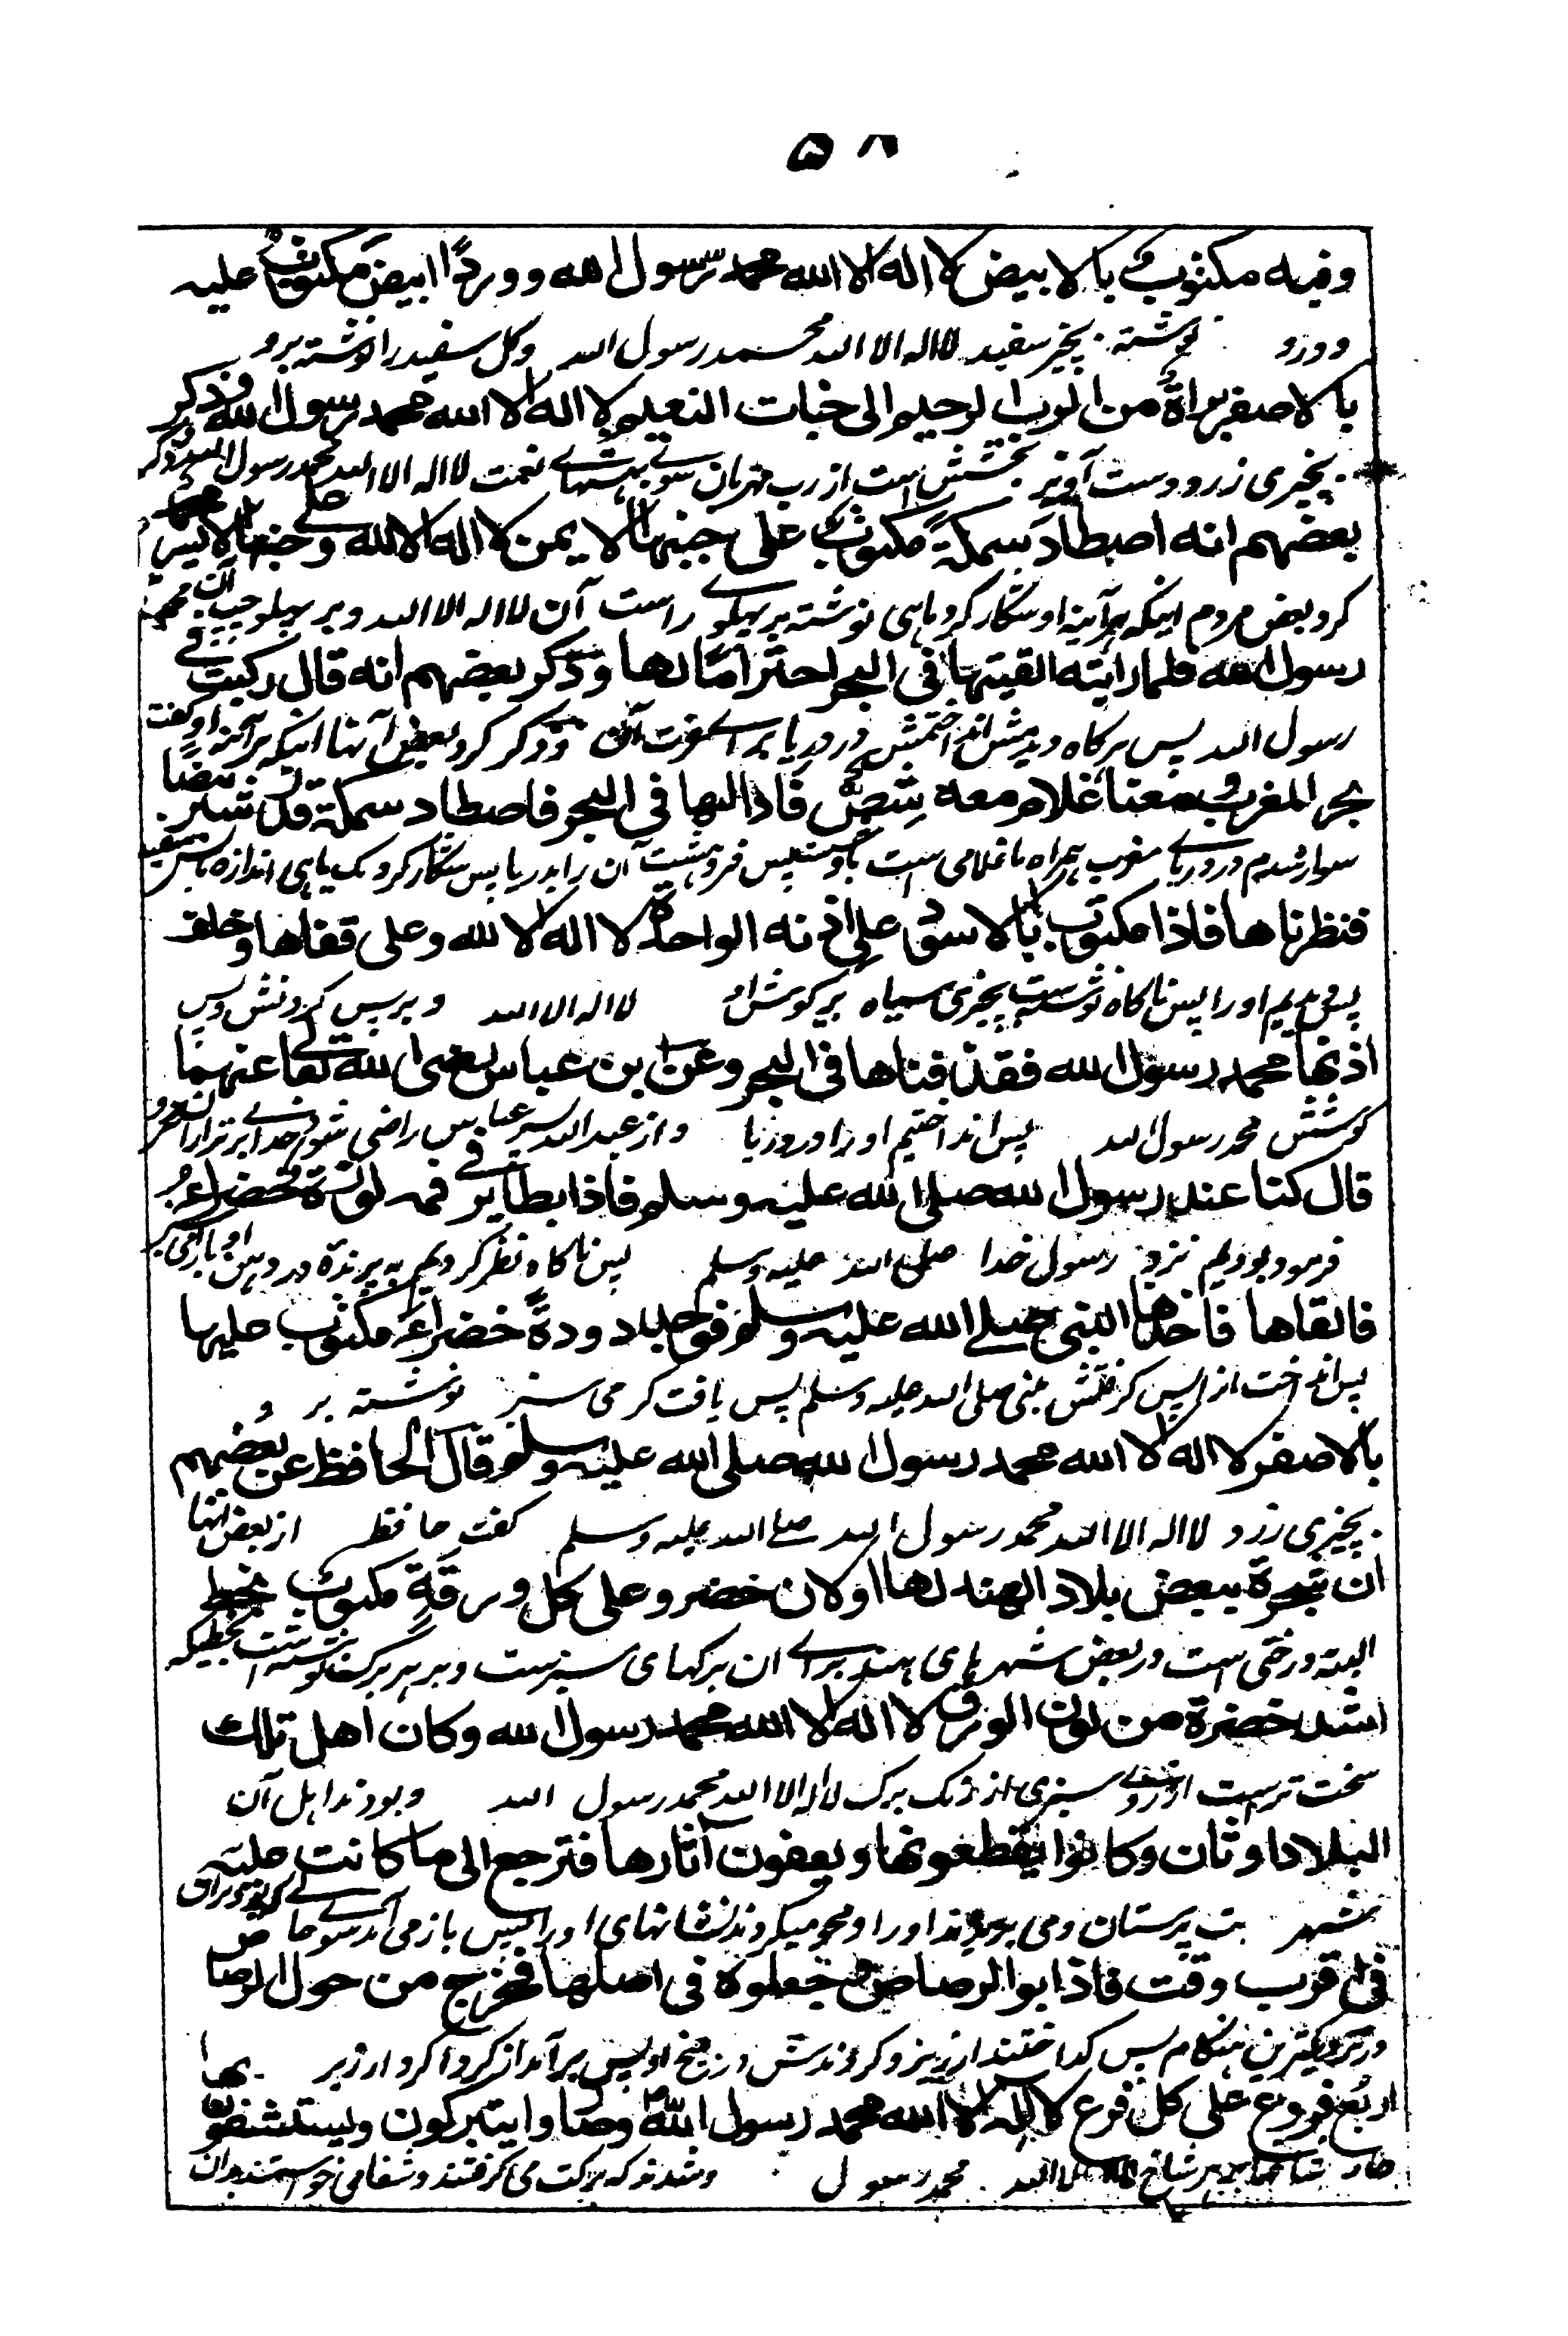 ۵۸
وفيه مكتوب بالابيض لا اله الا الله محمد رسول الله ووردا ابيض مكتوب عليه
ودرو نوشته بچیز سفید لا اله الا الله محمد رسول الله وگل سفید را نوشته برو
بالاصفر براة من الرب الرحيم الى جنات النعيم لا اله الا الله محمد رسول الله وذكر
بچیزی زرد دست آویز بخشش است از رب مهربان سوے بہشتہاے نعمت لا اله الا الله محمد رسول الله وذکر
بعضهم انه اصطاد سمكة مكتوب على جنبها الايمن لا اله الا الله وعلى جنبها الايسر محمد
کرد بعض مردم اینکه هرآینه او شکار کرد ماهی نوشته بر پہلوے راست آن لا اله الا الله وبر پہلو چپ آن محمد
رسول الله فلما رايته القيتها في البحر احتراما لها وذكر بعضهم انه قال ركبت في
رسول الله پس هرگاه دیدمش انداختمش در دریا براے عزت آن وذکر کرد بعض آنها اینکه هرآینه او گفت
بحر المغرب ومعنا غلام معه شص فادالها في البحر فاصطاد سمكة قدر شبر بيضا
سوار شدم در دریاے مغرب همراه ما غلامی است پس فروهشت آن را بدریا پس شکار کرد یک ماهی اندازه سفید
فنظرناها فاذا مكتوب بالاسود على اذنه الواحدة لا اله الا الله وعلى قفاها وخلف
پس دیدیم او را پس ناگاه نوشته است بچیزی سیاه بر گوش او لا اله الا الله وبر پس گردنش وپس
اذنها محمد رسول الله فقذفناها في البحر وعن ابن عباس رضى الله تعالى عنهما
گوشش محمد رسول الله پس انداختیم او را در دریا واز عبد الله پسر عباس راضی شود خداے برتر از آن هر دو
قال كنا عند رسول الله صلى الله عليه وسلم فاذا بطاير في فمه لوزة خضراء
فرمود بودیم نزد رسول خدا صلی الله علیه وسلم پس ناگاه نظر کردیم به پرندۀ در دهن او
فالقاها فاخذها النبي صلى الله عليه وسلم فوجد دودة خضراء مكتوب عليها
پس انداخت از پس گرفتش نبی صلی الله علیه وسلم پس یافت کرمی سبز نوشته بر و
بالاصفر لا اله الا الله محمد رسول الله صلى الله عليه وسلم وقال الحافظ عن بعضهم
بچیزی زرد لا اله الا الله محمد رسول الله صلے الله علیه وسلم گفت حافظ از بعض آنها
ان شجرة ببعض بلاد الهند لها اوراق خضر وعلى كل ورقة مكتوب بخط
البته درختی است در بعض شہر ہای ہند براے آن برگہای سبز ست وبر ہر برگ نوشته است بخطیکه
اشد خضرة من لون الورق لا اله الا الله محمد رسول الله وكان اهل تلك
سخت تر است از روے سبزی از رنگ برگ لا اله الا الله محمد رسول الله وبودند اہل آن
البلاد اوثان وكانوا يقطعونها ويعفون آثارها فترجع الى ما كانت عليه
شهر بت پرستان ومی بریدند او را ومحو میکردند نشانهای او را پس باز می آمد سوے
في اقرب وقت فاذابوا الرصاص وجعلوه في اصلها فخرج من حول الرصاص
در نزدیکترین هنگام پس گداختند ارزیز وکردندش در بیخ او پس برآمد از گرداگرد ارزیز
اربع فروع على كل فرع لا اله الا الله محمد رسول الله وصاروا يتبركون ويستشفون بها
چار شاخها بر هر شاخ لا اله الا الله محمد رسول وشدند که برکت می گرفتند وشفا می خواستند بدان